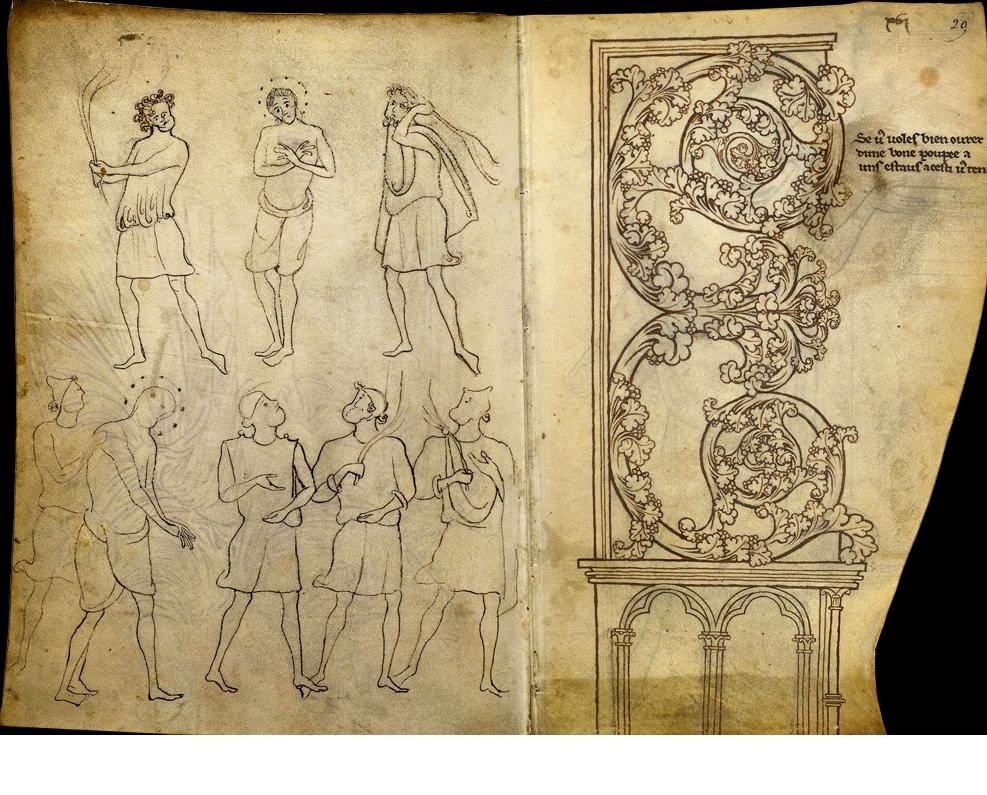 xvi 29
Se u̾ voles bien ovrer
dune bone poupee a
uns estaus acesti u̾ ten